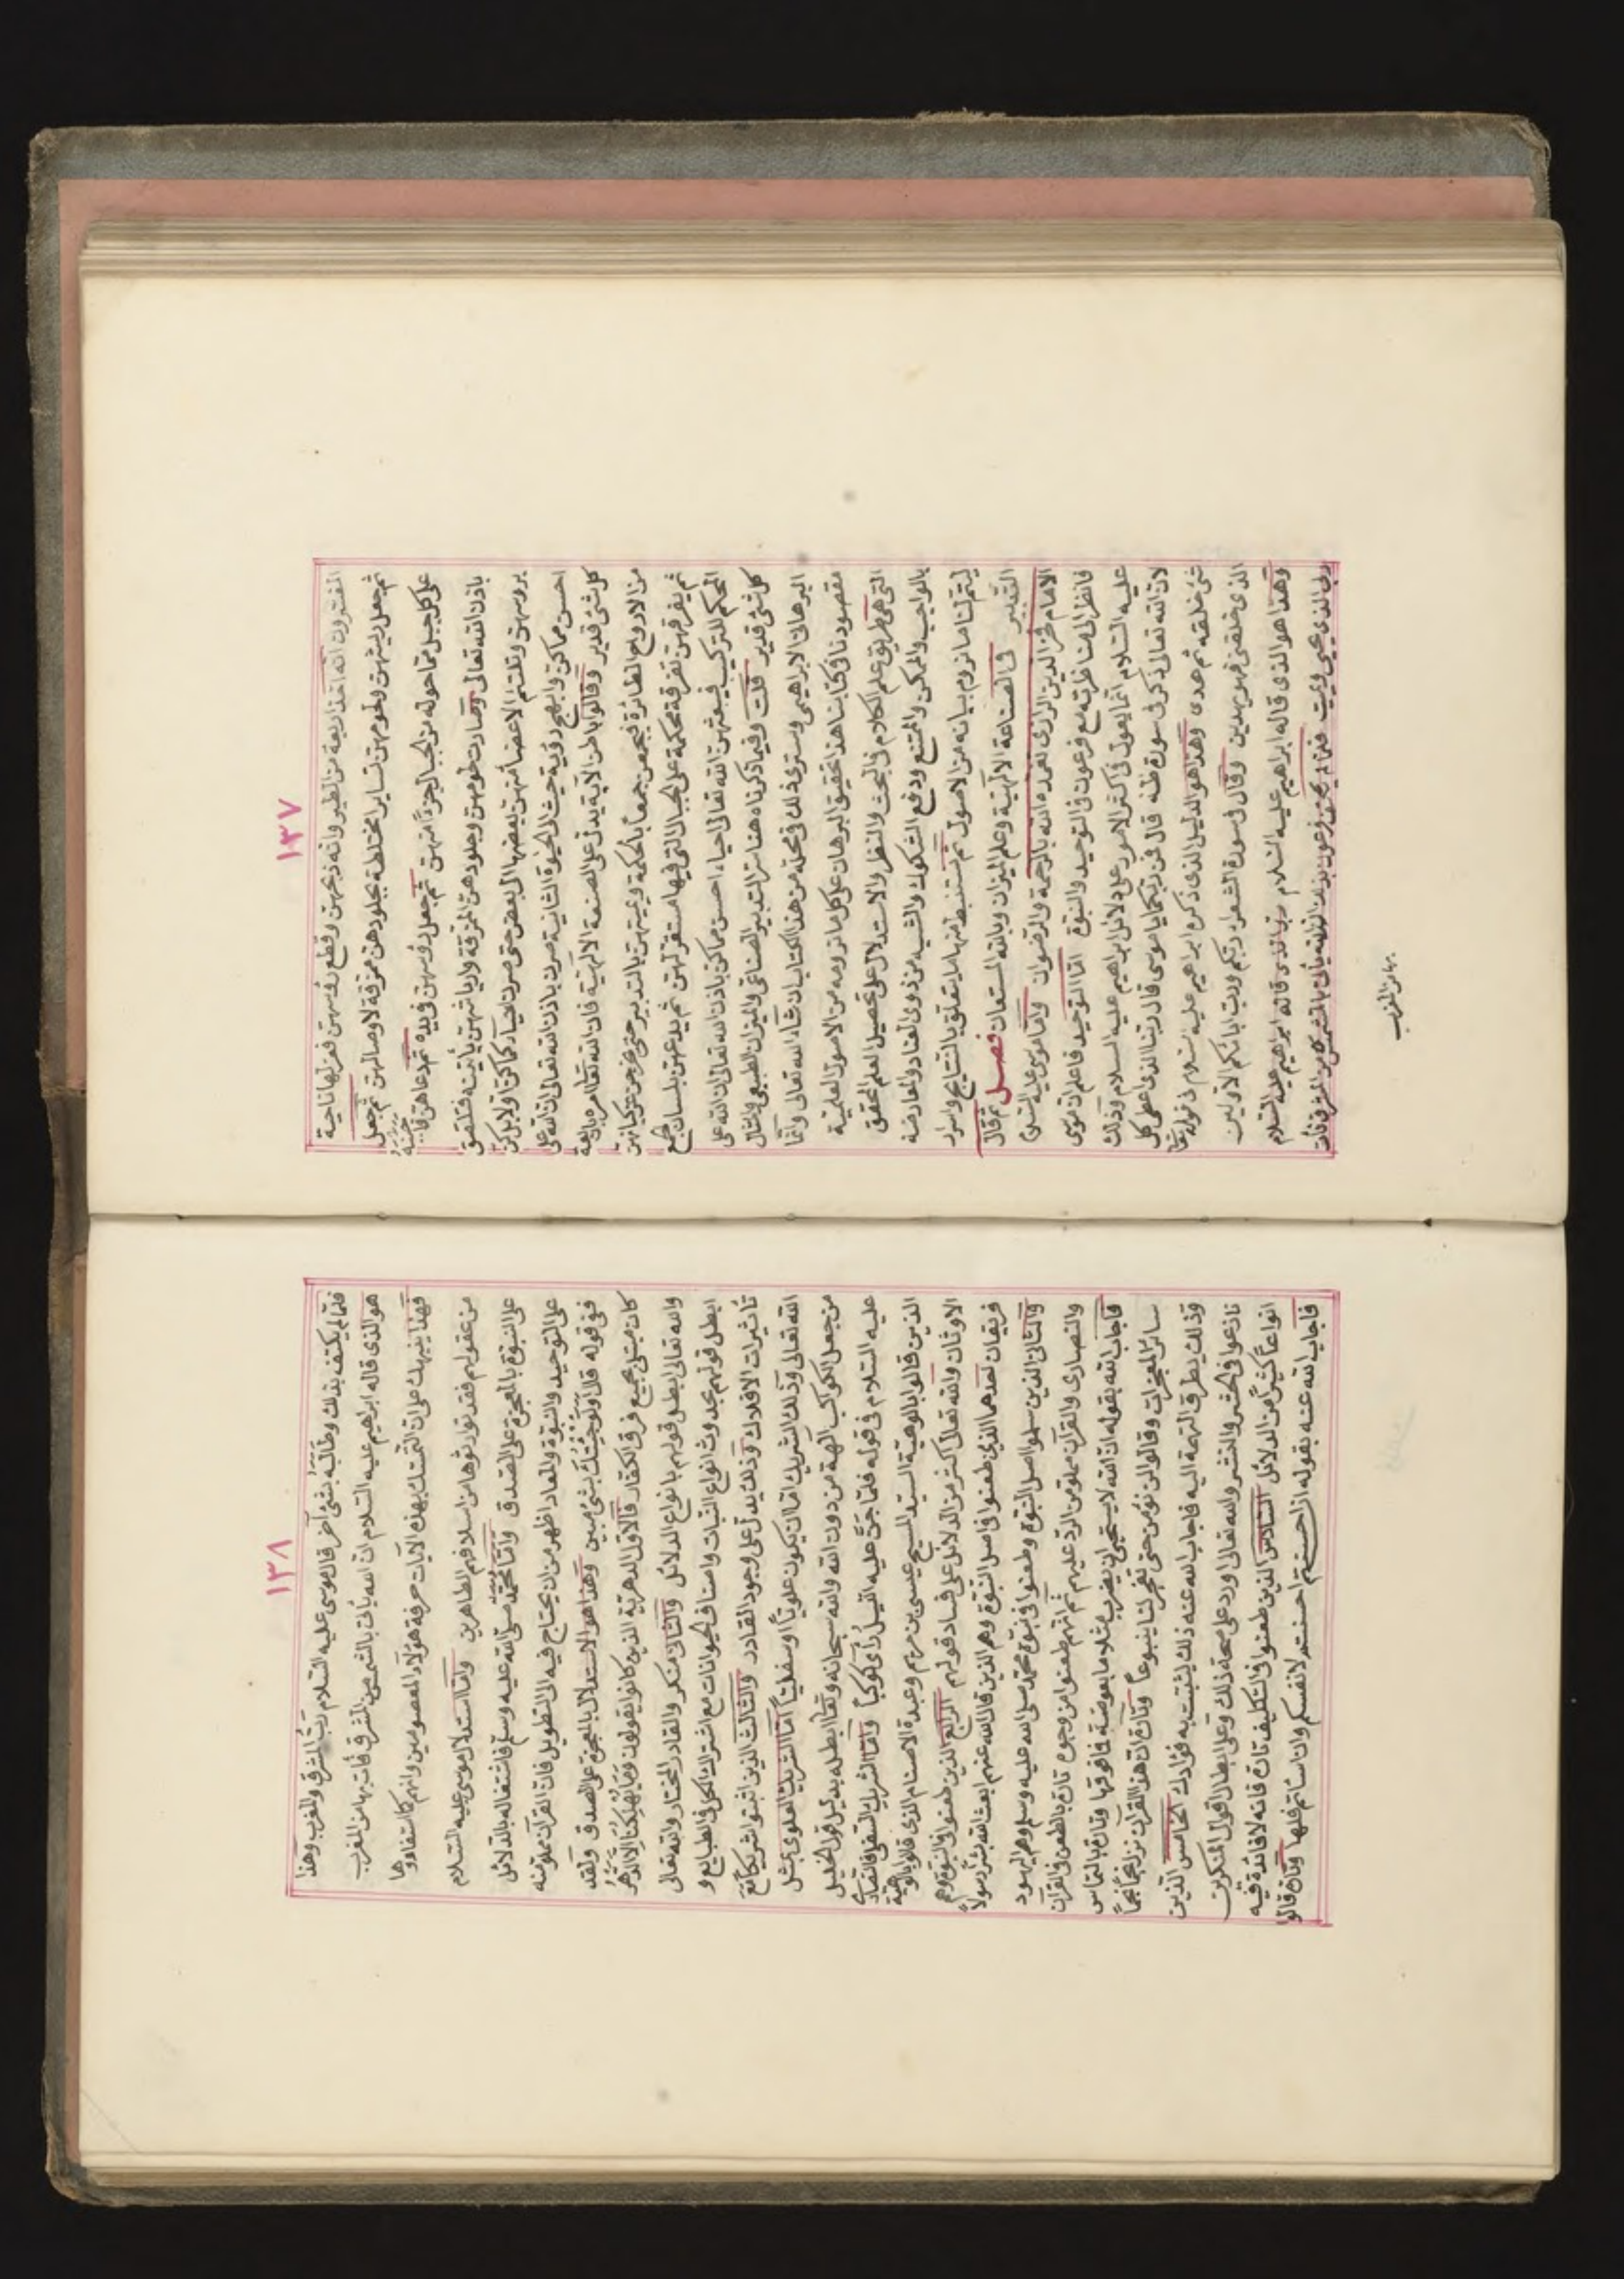 ١٣٧
المفسرون انه اخذ اربعة من الطير وانه ذبحهن وقطع رؤسهن فعزلها ناحية
ثم جعل ريشهن ولحومهن تساير مختلطة بجلودهن ممزقة لاوصالهن ثم جعل
على كل جبل مما حوله من الجبال جزءًا منهن ثم جعل رؤسهن في يده ثم دعاهن
باذن الله تعالى وصارت لحومهن وجلودهن الممزقة ورياشهن يأتينه فتلتصق
بروسهن وتلتئم الاعضاء منهن بعضها الى بعض حتى صرن احياء كما كن اولا بل كن
احسن مما كن وابهج رؤية حيث الحيوة الثانية صرن باذن الله تعالى ان الله على
كل شئ قدير وقالوا باطن الآية يدل على الصنعة الالهية فان الله تعالى امره باربعة
من الارواح الطائرة فيجمعهن جمعاً بالحكمة ويميتهن بالتدبير حتى
ثم يفرقهن تفرقة محكمة على الجبال التي فيها مستقر لهن ثم يدعهن بلسان
المحكم للتركيب فيبعثهن الله تعالى احياء احسن مما كن باذن الله تعالى ان الله على
كل شئ قدير قلت وفيما ذكرناه هنا سر التدبير الصناعي والميزان الطبيعي والمثال
البرهاني الابراهيمي وسترى ذلك في محله من هذا الكتاب ان شاء الله تعالى وانما
مقصودنا في كتابنا هذا تحقيق البرهان على كل ما نرومه من الاصول العلمية
التي هي طريق علم الكلام في البحث والنظر والاستدلال على تحصيل العلم المحقق
بالواجب والممكن والممتنع ودفع الشكوك والشبه من ذوي العناد والمعارضة
ليتم لنا ما نروم بيانه من الاصول ثم نستنبط منها ما يتعلق بالنتايج واسرار
التدبير في الصناعة الالهية وعلم الميزان وبالله المستعان فصل ثم قال
الامام فخر الدين الرازي تغمده الله بالرحمة والرضوان واما موسى عليه السلام
فانظر الى مناظرته مع فرعون في التوحيد والنبوة اما التوحيد فاعلم ان موسى
عليه السلام انما يعول في اكثر الامور على دلائل ابراهيم عليه السلام وذلك
لان الله تعالى ذكر في سورة طه قال فمن ربكما يا موسى قال ربنا الذي اعطى كل
شئ خلقه ثم هدى وهذا هو الدليل الذي ذكره ابراهيم عليه السلام في قوله تعالى
الذي خلقني فهو يهدين وقال في سورة الشعراء ربكم ورب ابائكم الاولين
وهذا هو الذي قاله ابراهيم عليه السلام ربي الذي قاله ابراهيم عليه السلام
ربي الذي يحيي ويميت فلما لم يكتف فرعون بذلك ان الله يأتي بالشمس من المشرق فأت
بها من المغرب
١٣٨
فلما لم يكتف بذلك وطالبه بشئ آخر قال موسى عليه السلام رب المشرق والمغرب وهذا
هو الذي قاله ابراهيم عليه السلام ان الله يأتي بالشمس من المشرق فأت بها من المغرب
فهذا ينبهك على ان التمسك بهذه الآيات حرفة هؤلاء المعصومين وانهم كما استفادوها
من عقولهم فقد توارثوها من اسلافهم الطاهرين واما استدلال موسى عليه السلام
على النبوة بالمعجزة على الصدق واما محمد صلى الله عليه وسلم فاشتغاله بالدلائل
على التوحيد والنبوة والمعاد اظهر من ان يحتاج فيه الى التطويل فان القرآن مملو منه
ففي قوله قل اولو جئتك بشئ مبين وهذا هو الاستدلال بالمعجزة على الصدق ولقد
كان مبتلى بجميع فرق الكفار فالاول الدهرية الذين كانوا يقولون وما يهلكنا الا الدهر
والله تعالى ابطل قولهم بانواع الدلائل والثاني منكر والقادر المختار والله تعالى
ابطل قولهم بحدوث انواع النبات واصناف الحيوانات مع اشتراك الكل في الطبايع و
تأثيرات الافلاك وذلك يدل على وجود القادر والثالث الذين اثبتوا شريكًا مع
الله تعالى وذلك الشريك اما ان يكون علويًا او سفليًا اما الشريك العلوي فمثل
من جعل الكواكب آلهة من دون الله والله سبحانه وتعالى ابطله بدليل قول الخليل
عليه السلام في قوله فلما جن عليه الليل رأى كوكبًا واما الشريك السفلي فالنصارى
الذين قالوا بالوهية السيد المسيح عيسى بن مريم وعبدة الاصنام الذي قالوا بالوهية
الاوثان والله تعالى اكثر من الدلائل على فساد قولهم الرابع الذين طعنوا في النبوة وهم
فريقان احدهما الذين طعنوا في اصل النبوة وهم الذين قال الله عنهم ابعث الله بشرًا رسولاً
والثاني الذين سلموا اصل النبوة وطعنوا في نبوة محمد صلى الله عليه وسلم وهم اليهود
والنصارى والقرآن مملو من الرد عليهم ثم انهم طعنوا من وجوه تارة بالطعن في القرآن
فاجاب الله بقوله ان الله لا يستحيي ان يضرب مثلا ما بعوضة فما فوقها وتارة بالتماس
سائر المعجزات وقالوا لن نؤمن حتى تفجر لنا ينبوعاً وتارة ان هذا القرآن نزل نجمًا نجمًا
وذلك يطرق التهمة اليه فاجاب الله عنه ذلك لنثبت به فؤادك الخامس الذين
نازعوا في الحشر والنشر والله تعالى اورد على صحة ذلك وعلى ابطال قول المنكرين
انواعًا كثيرًا من الدلائل السادس الذين طعنوا في التكليف تارة فانه لا فائدة فيه
فاجاب الله عنه بقوله ان احسنتم احسنتم لانفسكم وان اسأتم فلها وتارة قالوا